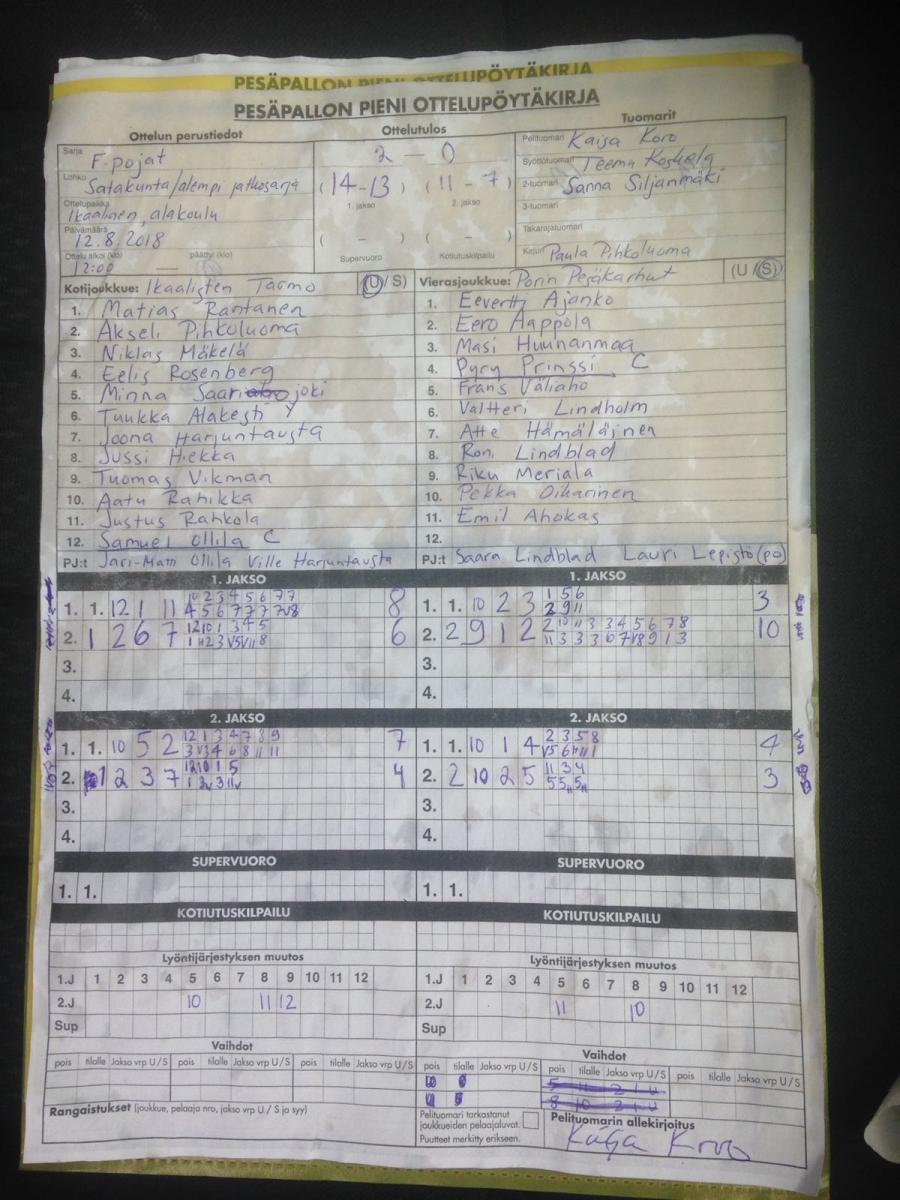 PESÄPALLON PIENI OTTELUPÖYTÄKIRJA
PESÄPALLON PIENI OTTELUPÖYTÄKIRJA
Ottelun perustiedot
Sarja F-pojat
Lohko Satakunta/alempi jatkosarja
Ottelupaikka Ikaalinen, alakoulu
Päivämäärä 12.8.2018
Ottelu alkoi (klo) päättyi (klo)
12:00
Ottelutulos
2 - 0
(14-13) (11-7)
1. jakso 2. jakso
( - ) ( - )
Supervuoro Kotiutuskilpailu
Tuomarit
Pelituomari Kaisa Koro
Syöttötuomari Teema Koskela
2-tuomari Sanna Siljanmäki
3-tuomari
Takarajatuomari
Kirjuri Paula Pihkoluoma
Kotijoukkue: Ikaalisten Tarmo (U/S)
1. Matias Rantanen
2. Akseli Pihkoluoma
3. Niklas Mäkelä
4. Eelis Rosenberg
5. Minna Saarijoki
6. Tuukka Alakesti Y
7. Joona Harjuntausta
8. Jussi Hiekka
9. Tuomas Vikman
10. Aatu Rahikka
11. Justus Rahkola
12. Samuel Ollila C
PJ:t Jari-Matti Ollila Ville Harjuntausta
Vierasjoukkue: Porin Pesäkarhut (U/S)
1. Eevertti Ajanko
2. Eero Aappola
3. Masi Huunanmaa
4. Pyry Prinssi C
5. Frans Väliaho
6. Valtteri Lindholm
7. Atte Hämäläinen
8. Roni Lindblad
9. Riku Meriala
10. Pekka Oikarinen
11. Emil Ahokas
12.
PJ:t Saara Lindblad Lauri Lepistö (po)
1. JAKSO
1. 1. 12 1 11 8
2. 1 2 6 7 6
3.
4.
1. JAKSO
1. 1. 10 2 3 3
2. 2 9 1 2 10
3.
4.
2. JAKSO
1. 1. 10 5 2 7
2. 1 2 3 7 4
3.
4.
2. JAKSO
1. 1. 10 1 4 4
2. 2 10 2 5 3
3.
4.
SUPERVUORO
1. 1.
SUPERVUORO
1. 1.
KOTIUTUSKILPAILU
KOTIUTUSKILPAILU
Lyöntijärjestyksen muutos
1.J 1 2 3 4 5 6 7 8 9 10 11 12
2.J 10 11 12
Sup
Lyöntijärjestyksen muutos
1.J 1 2 3 4 5 6 7 8 9 10 11 12
2.J 11 10
Sup
Vaihdot
pois tilalle Jakso vrp U/S pois tilalle Jakso vrp U/S pois tilalle Jakso vrp U/S
Vaihdot
pois tilalle Jakso vrp U/S pois tilalle Jakso vrp U/S pois tilalle Jakso vrp U/S
5 11 2 1 U
8 10 2 1 U
Rangaistukset (joukkue, pelaaja nro, jakso vrp U / S ja syy)
Pelituomari tarkastanut
joukkueiden pelaajaluvat.
Puutteet merkitty erikseen.
Pelituomarin allekirjoitus
Kaisa Koro